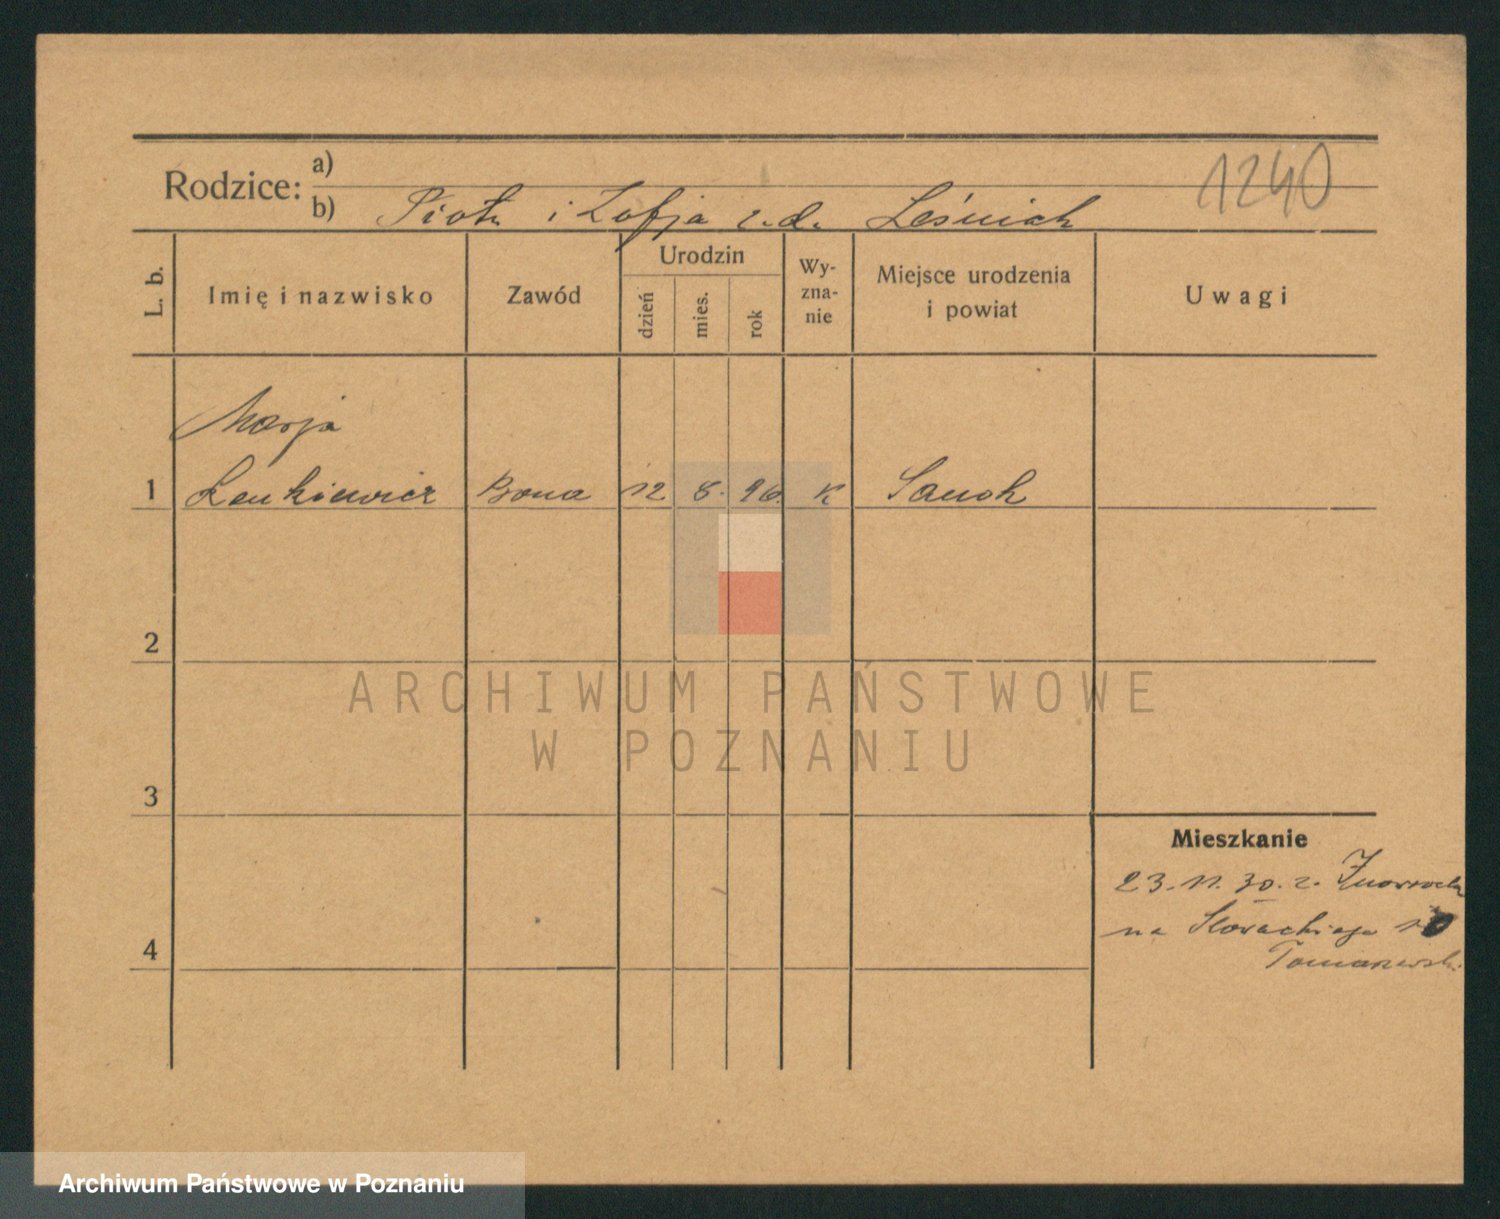 1240
Rodzice: a)
b) Piotr i Zofja z.d. Leśniak
L. b.
Imię i nazwisko
Zawód
Urodzin
dzień
mies.
rok
Wy-
zna-
nie
Miejsce urodzenia
i powiat
Uwagi
Marja
1 Lenkiewicz Bona 12 8. 96. K Sanok
2
3
4
Mieszkanie
23.11.30. z
na Słowackiego
Tomaszewski
ARCHIWUM PAŃSTWOWE
W POZNANIU
Archiwum Państwowe w Poznaniu